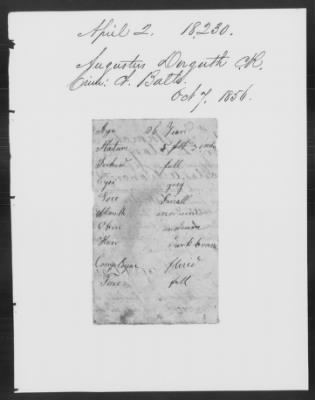 April 2. 18,230.
Augustus Dorguth
Balto.
Oct 7. 1856.
Age 26 Years
Stature 5 feet 7 inch
Forhead full
Eyes grey
Nose Small
Mouth
Chin
Hair dark brown
Complexion
Face full